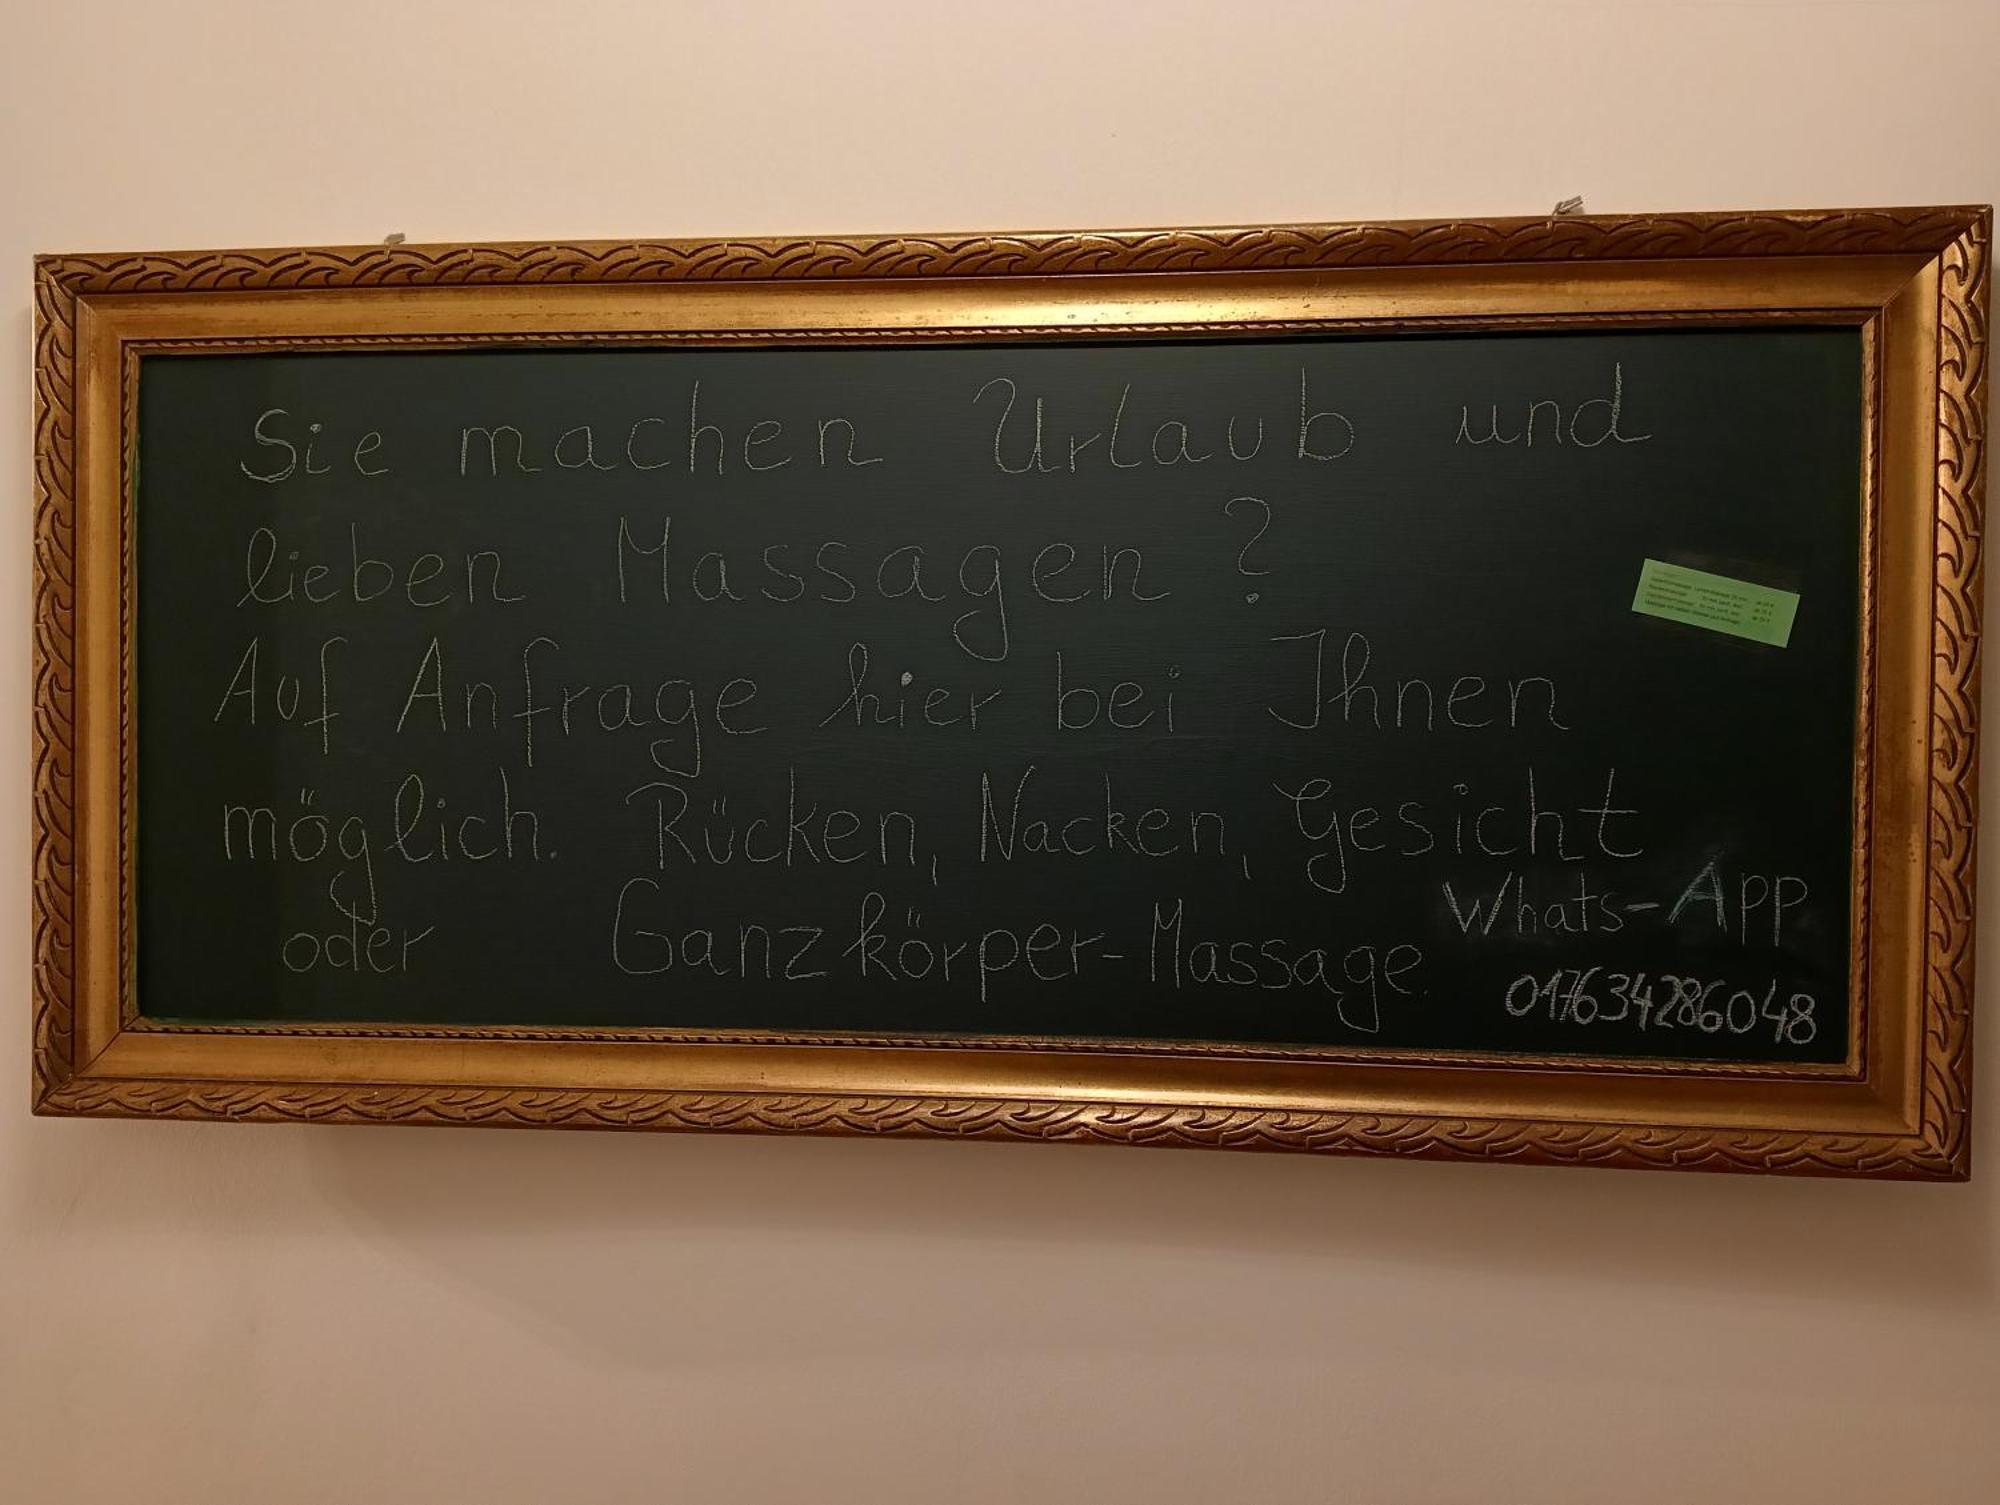 Sie machen Urlaub und
lieben Massagen ?
Auf Anfrage hier bei Ihnen
möglich. Rücken, Nacken, Gesicht
oder Ganzkörper-Massage.
Whats-App
017634286048